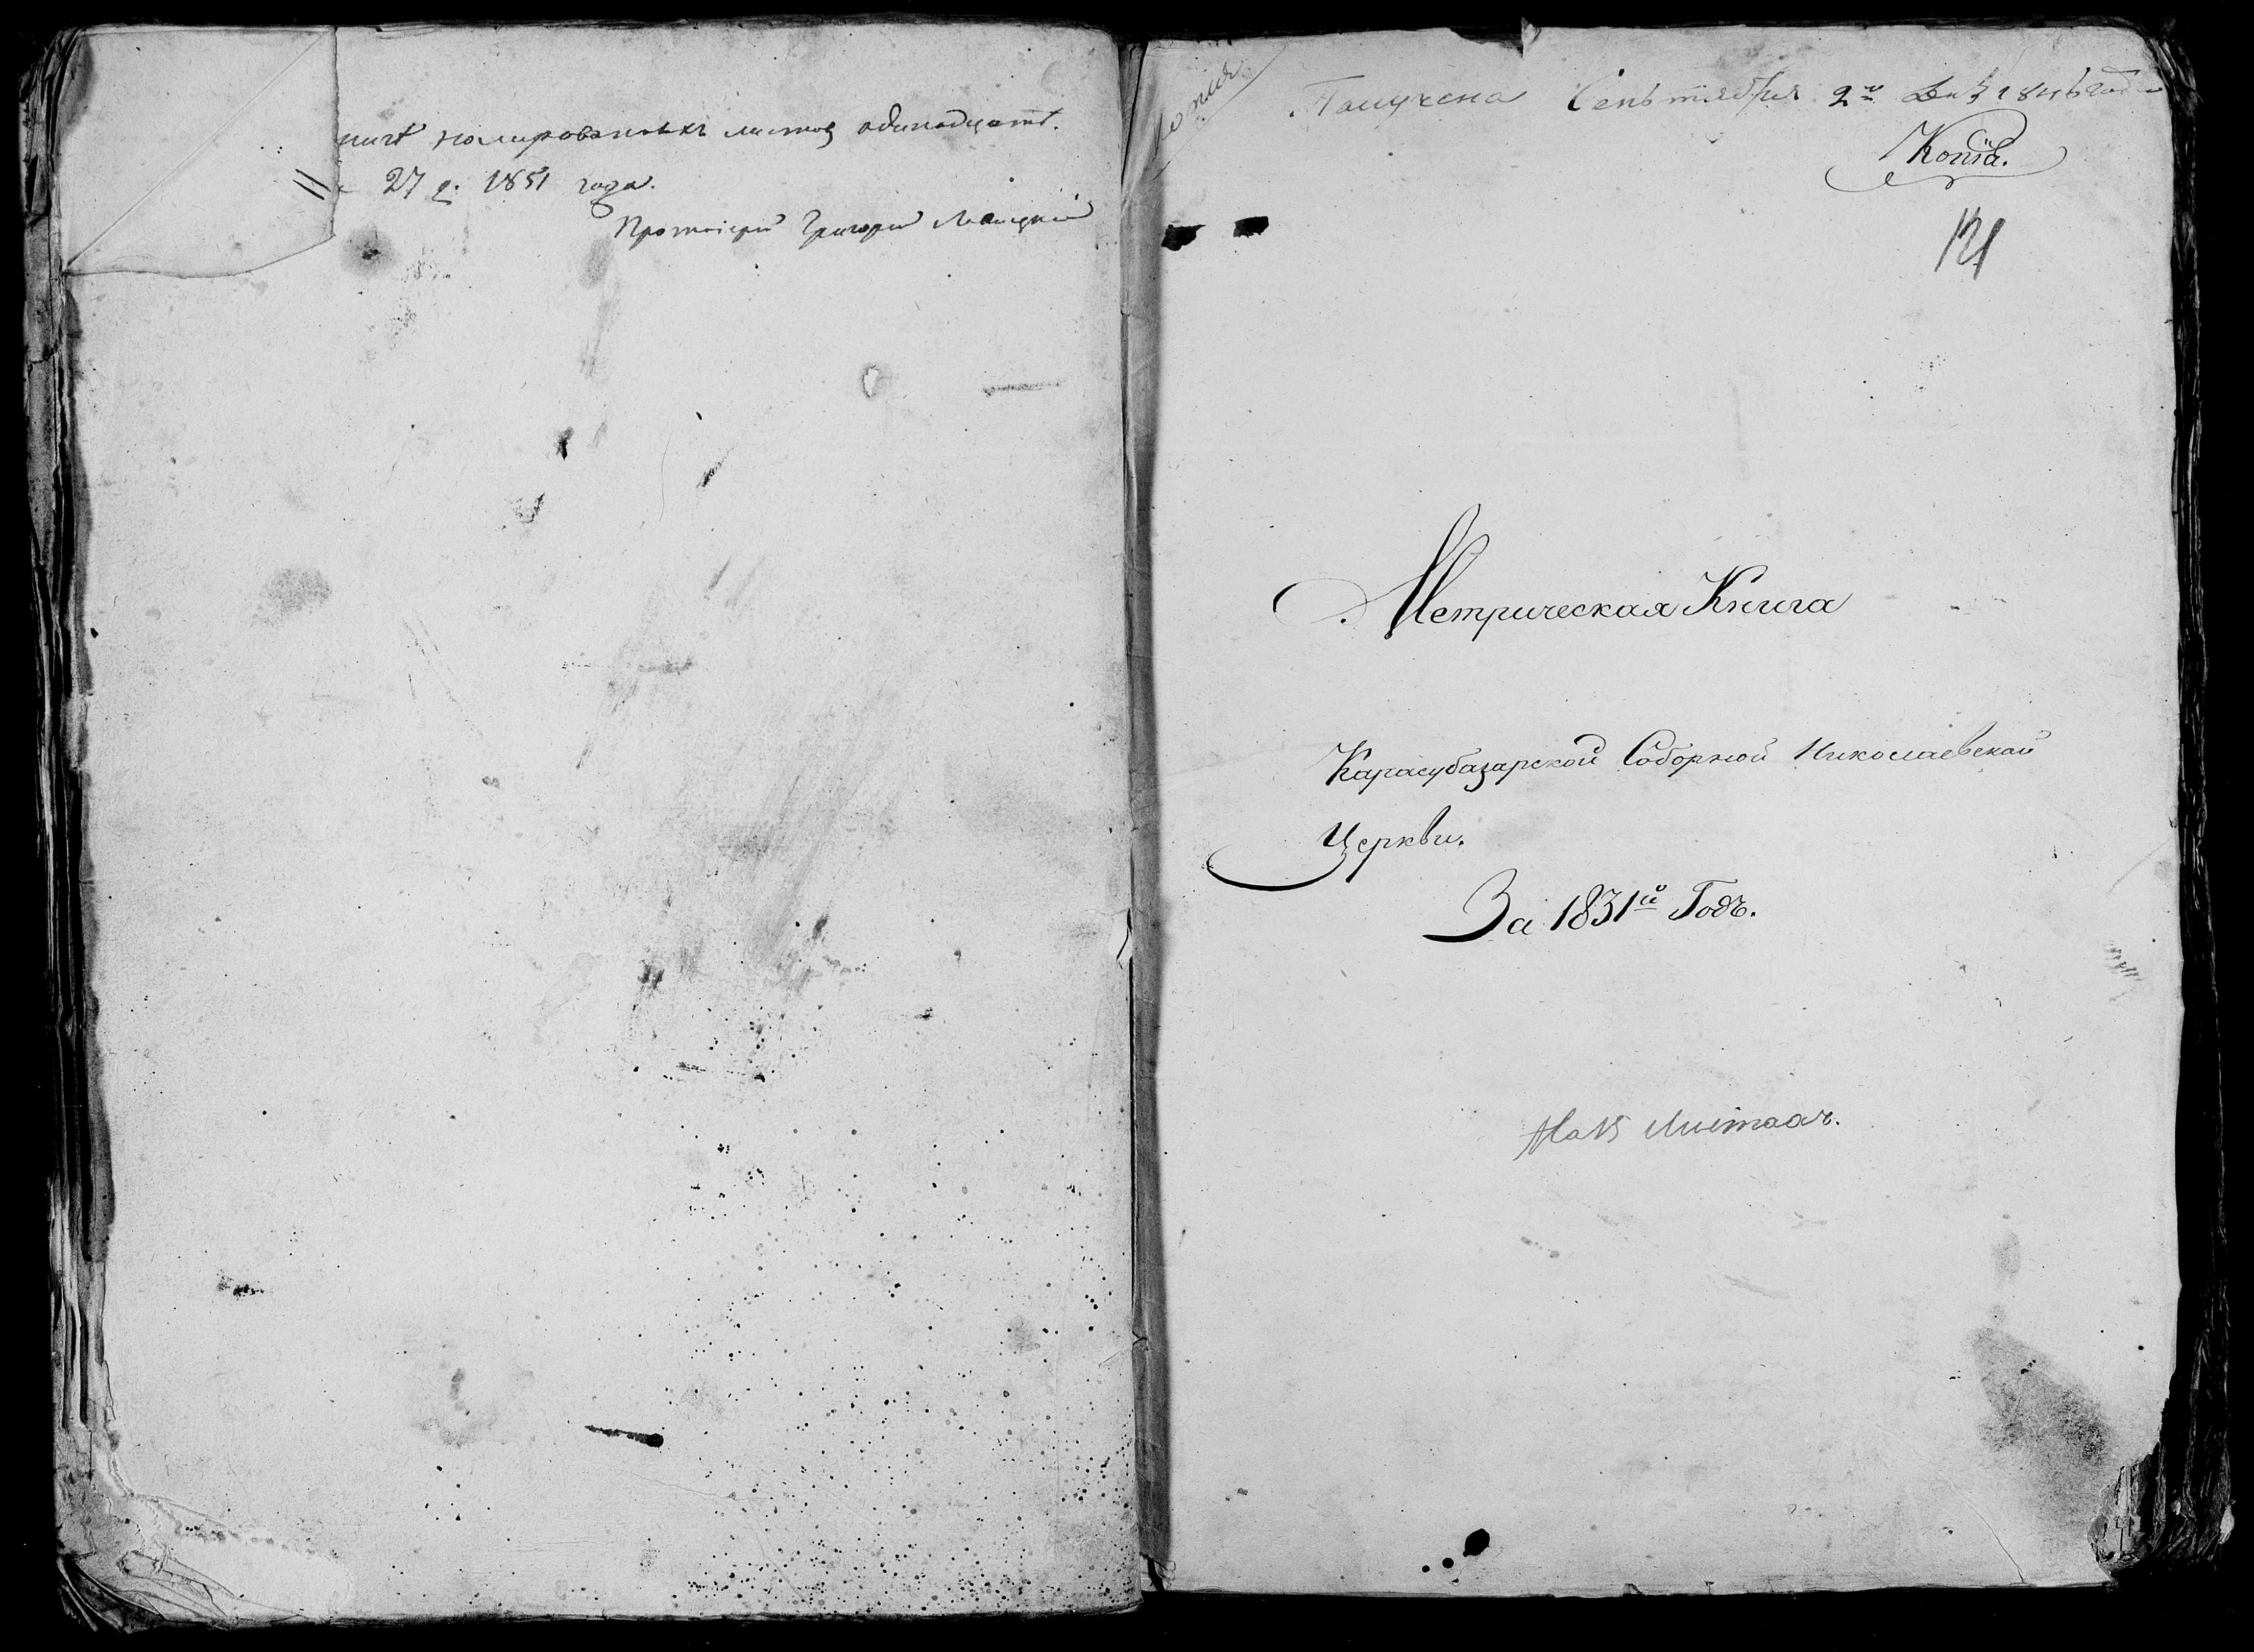 нумерованныхъ листовъ одинадцать.
27 д. 1851 года.
Протоіерей Григорій
Копія
Получена Сентября 2го дня 1846 года
Копія.
121
Метрическая Книга
Карасубазарской Соборной Николаевской
Церкви.
За 1831й Годъ.
На 15 листахъ.